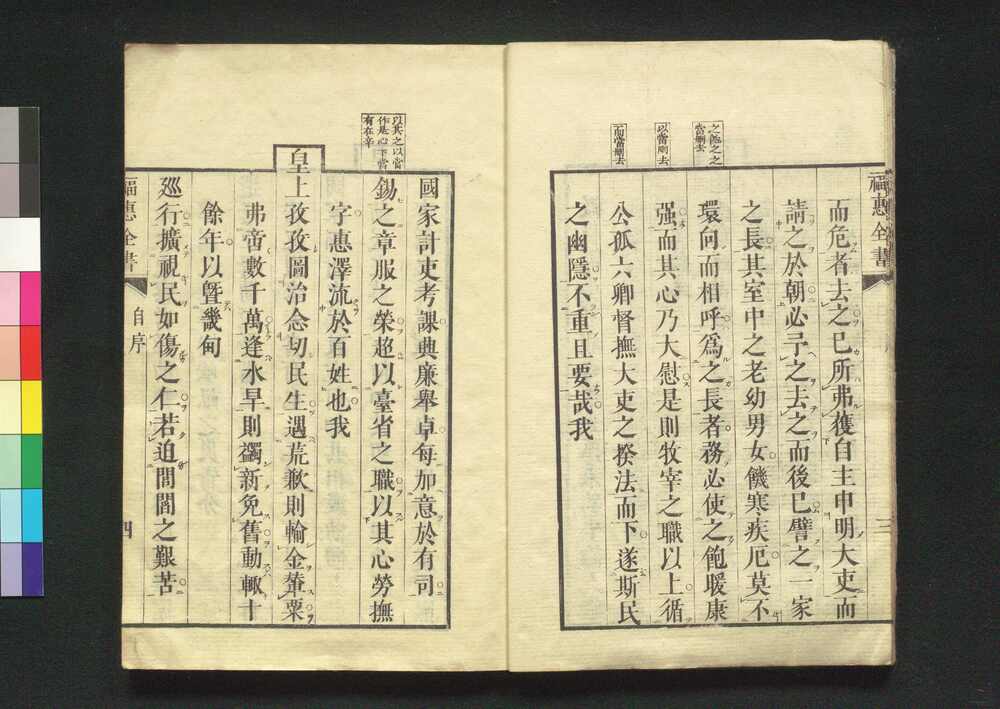 福惠全書
三
之飽之之
當刪去
以當刪去
而當刪去
而危者去之已所弗獲自主申明大吏而
請之於朝必予之去之而後已譬之一家
之長其室中之老幼男女饑寒疾厄莫不
環向而相呼爲之長者務必使之飽暖康
强而其心乃大慰是則牧宰之職以上循
公孤六卿督撫大吏之揆法而下遂斯民
之幽隱不重且要哉我
以其之以當
作是心下當
有在辛
國家計吏考課典廉舉卓每加意於有司
錫之章服之榮超以臺省之職以其心勞撫
字惠澤流於百姓也我
皇上孜孜圖治念切民生遇荒歉則輸金輂粟
弗啻數千萬逢水旱則蠲新免舊動輒十
餘年以曁畿甸
廵行擴視民如傷之仁若迫閭閻之艱苦
福惠全書
自序
四